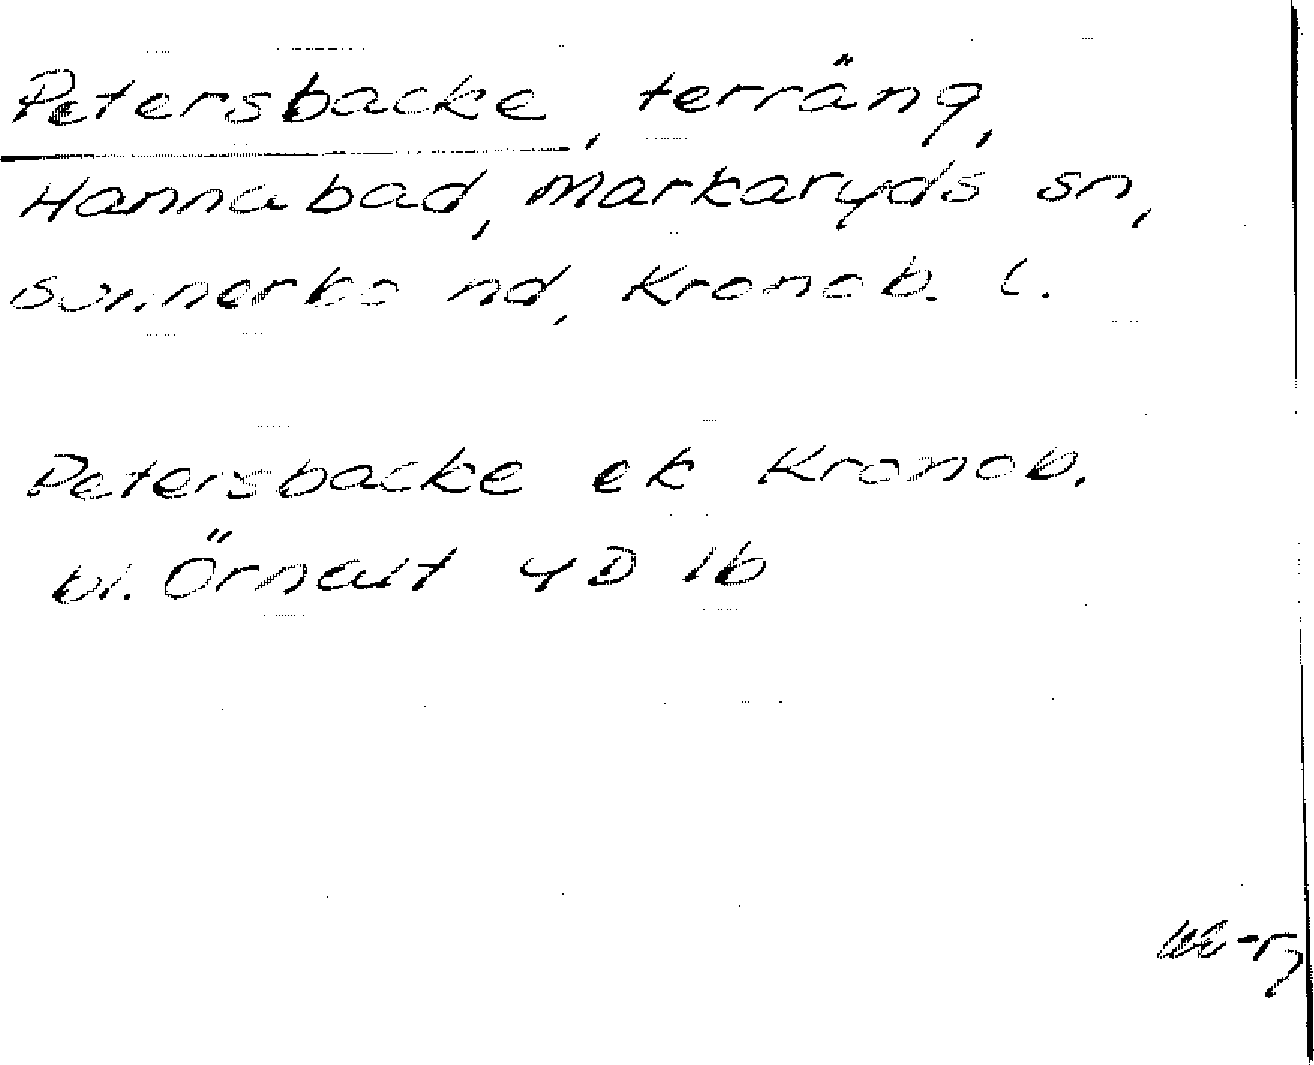 Petersbacke, terräng,
Hannabad, Markaryds sn,
Sunnerbo hd, Kronob. l.
Petersbacke ek Kronob.
bl. Örnalt 4D 1b